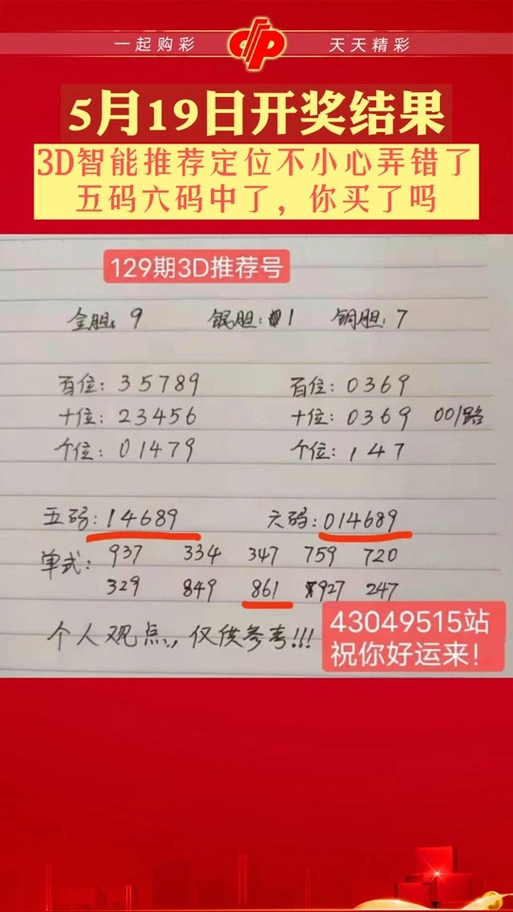 一起购彩 天天精彩
5月19日开奖结果
3D智能推荐定位不小心弄错了
五码六码中了，你买了吗
129期3D推荐号
金胆:9 银胆:1 铜胆:7
百位:35789 百位:0369
十位:23456 十位:0369 001路
个位:01479 个位:147
五码:14689 六码:014689
单式: 937 334 347 759 720
329 849 861 927 247
个人观点,,仅供参考!!!
43049515站
祝你好运来!